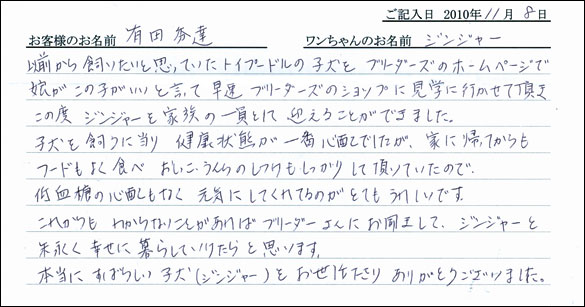 ご記入日 2010年11月8日
お客様のお名前 有田 芬達 ワンちゃんのお名前 ジンジャー
以前から飼りたいと思っていたトイプードルの子犬を ブリーダーズのホームページで
娘が この子がいいと言って 早速 ブリーダーズのショップに見学に行かせて頂き
この度 ジンジャーを家族の一員として 迎えることができました。
子犬を飼うに当り 健康状態が 一番心配でしたが、家に帰ってからも
フードもよく食べ おしっこ・うんちのしつけもしっかりして頂いていたので、
低血糖の心配もなく 元気にしてくれてるのがとてもうれしいです。
これからも わからないことがあれば ブリーダーさんにお聞きして、ジンジャーと
末永く 幸せに 暮らしていけたらと思います。
本当に すばらしい子犬(ジンジャー)を お世話下さり ありがとうございました。